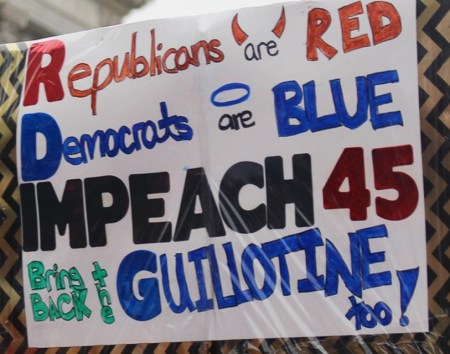 Republicans are RED
Democrats are BLUE
IMPEACH 45
Bring BACK the GUILLOTINE
too!